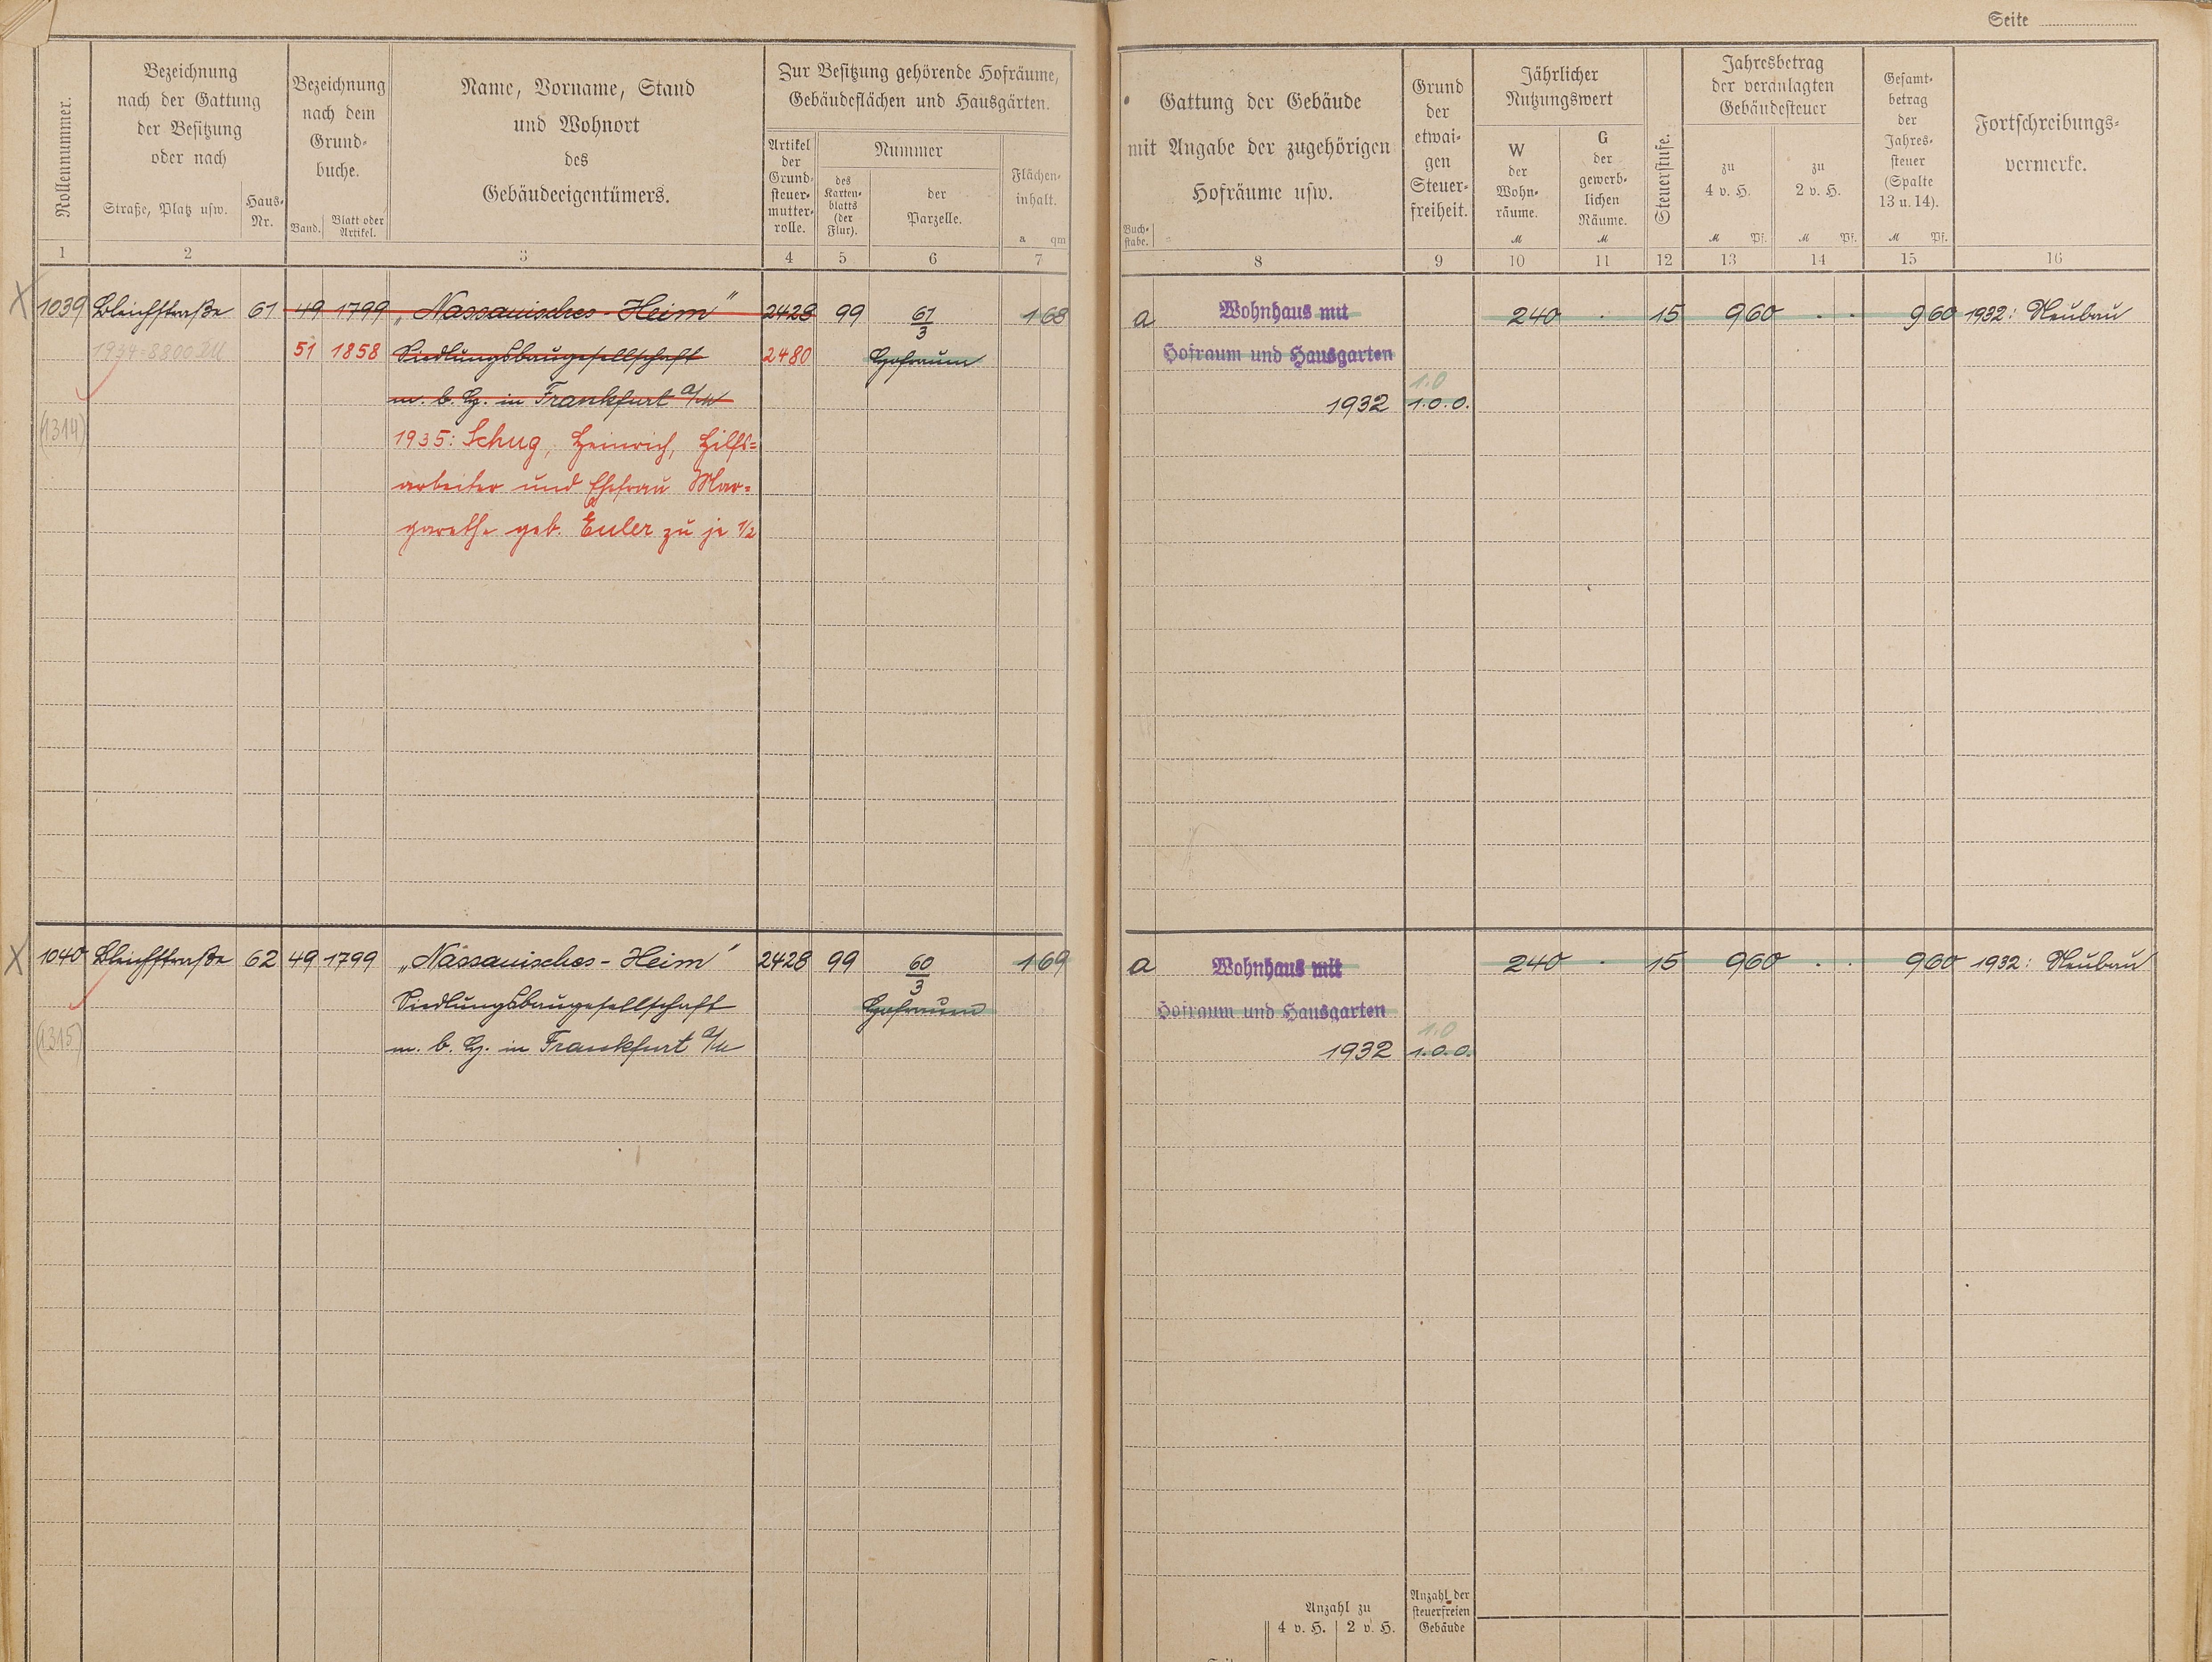 Seite
Rollennummer.
Bezeichnung
nach der Gattung
der Besitzung
oder nach
Straße, Platz usw.
Haus-
Nr.
Bezeichnung
nach dem
Grund-
buche.
Band.
Blatt oder
Artikel.
Name, Vorname, Stand
und Wohnort
des
Gebäudeeigentümers.
Zur Besitzung gehörende Hofräume,
Gebäudeflächen und Hausgärten.
Artikel
der
Grund-
steuer-
mutter-
rolle.
Nummer
des
Karten-
blatts
(der
Flur).
der
Parzelle.
Flächen-
inhalt.
a qm
1 2 3 4 5 6 7
1039 Bleichstraße 61 49 1799 „Nassauisches-Heim" 2428 99 61/3 1 68
1934=8800 RM 51 1858 Siedlungsbaugesellschaft 2480 Hofraum
m. b. H. in Frankfurt a/M
(1314)
1935: Schug, Heinrich, Hilfs=
arbeiter und Ehefrau Mar=
garethe geb. Euler zu je 1/2
1040 Bleichstraße 62 49 1799 „Nassauisches-Heim" 2428 99 60/3 1 69
Siedlungsbaugesellschaft Hofraum
(1315) m. b. H. in Frankfurt a/M
Gattung der Gebäude
mit Angabe der zugehörigen
Hofräume usw.
Buch-
stabe.
Grund
der
etwai-
gen
Steuer-
freiheit.
Jährlicher
Nutzungswert
W
der
Wohn-
räume.
M
G
der
gewerb-
lichen
Räume.
M
Steuerstufe.
Jahresbetrag
der veranlagten
Gebäudesteuer
zu
4 v. H.
M Pf.
zu
2 v. H.
M Pf.
Gesamt-
betrag
der
Jahres-
steuer
(Spalte
13 u. 14).
M Pf.
Fortschreibungs-
vermerke.
8 9 10 11 12 13 14 15 16
a Wohnhaus mit 240 · 15 9 60 · · 9 60 1932: Neubau
Hofraum und Hausgarten
1.0
1932 1.0.0.
a Wohnhaus mit 240 · 15 9 60 · · 9 60 1932: Neubau
Hofraum und Hausgarten
1.0
1932 1.0.0.
Anzahl zu
4 v. H. 2 v. H.
Anzahl der
steuerfreien
Gebäude